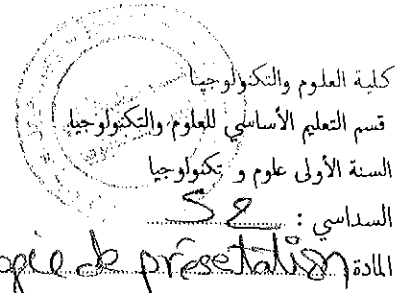 كلية العلوم والتكنولوجيا
قسم التعليم الأساسي للعلوم والتكنولوجيا
السنة الأولى علوم و تكنولوجيا
السداسي : S2
المادة ogie de présetation